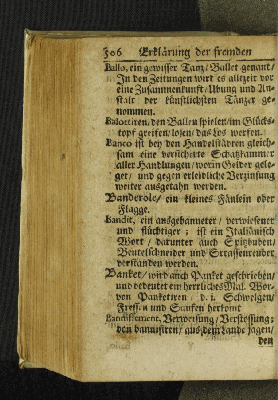 306 Erklärung der fremden
Ballo, ein gewisser Tantz / Ballet genant /
In den Zeitungen wird es allezeit vor
eine Zusammenkunft / Ubung und An-
stalt der künstlichsten Täntzer ge-
nommen.
Balottiren, den Ballen spielen / im Glücks-
topf greifen / losen / das Los werfen.
Banco ist bey den Handelstädten gleich-
sam eine versicherte Schatzkammer
aller Handlungen / worin Gelder gele-
get / und gegen erleidliche Verzinsung
weiter ausgetahn werden.
Banderole / ein kleines Fänlein oder
Flagge.
Bandit, ein ausgebanneter / verwiesener
und flüchtiger ; ist ein Italiänisch
Wort / darunter auch Spitzbuben /
Beutelschneider und Strassenreuber
verstanden werden.
Banket / wird auch Panket geschrieben /
und bedeutet ein herrliches Mal. Wor-
von Panketiren / d. i. Schwelgen /
Fressen und Saufen herkomt
Bannissement, Verweisung / Verstossung ;
den bannisiren / aus dem Lande jagen /
den